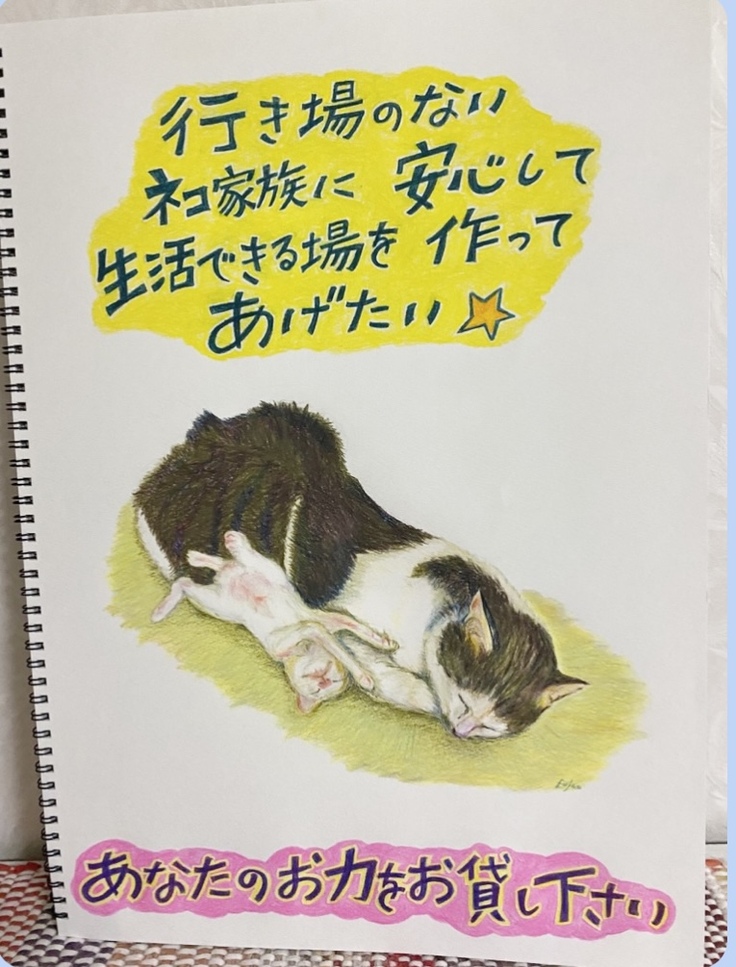 行き場のない
ネコ家族に 安心して
生活できる場を 作って
あげたい☆
あなたのお力をお貸し下さい